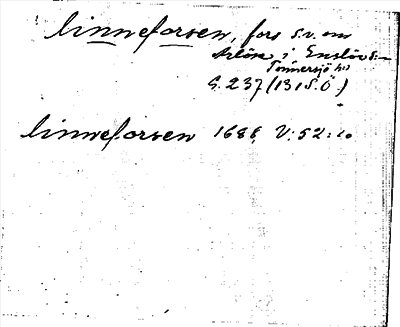 linneforsen, fors s.v. om
Årlöse i Enslövs sn
Tönnersjö hd
G. 237 (13 1 S.Ö)
linneforsen 1686 V: 52:10